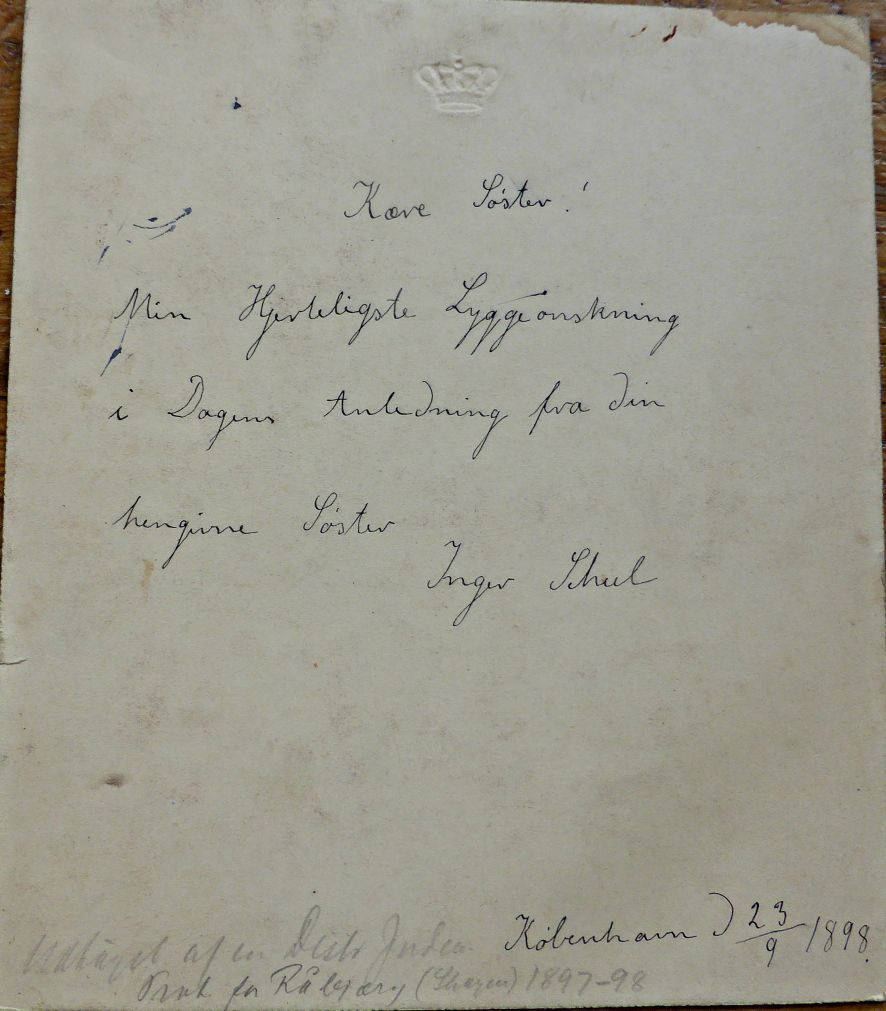 Kære Søster!
Min Hjerteligste Lyggeønskning
i Dagens Anledning fra din
hengivne Søster
Inger
København D 23/9 1898.
Udtaget af en Distr
Prot for Råbjerg (Skagen) 1897-98